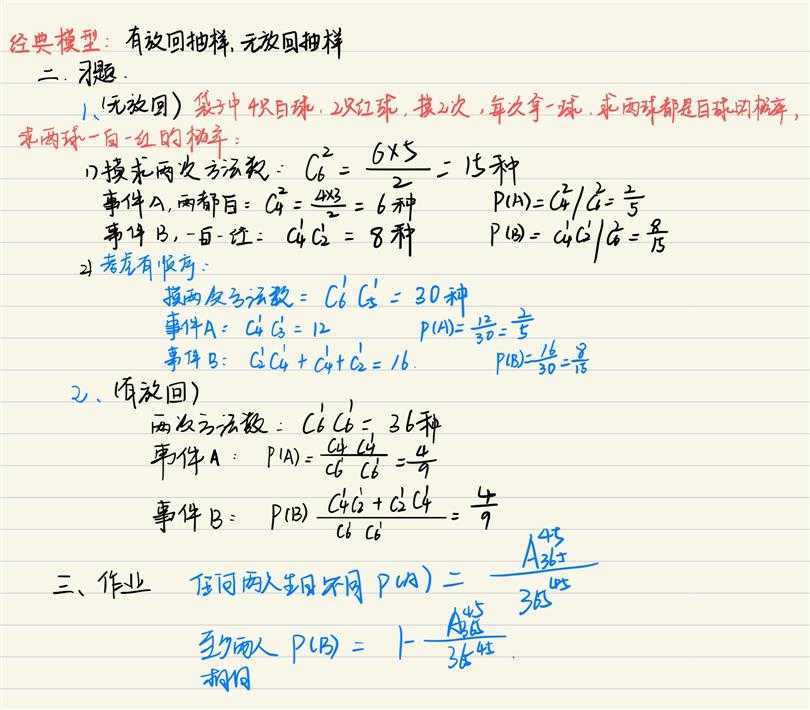 经典模型: 有放回抽样,无放回抽样
二. 习题.
1、(无放回) 袋子中4只白球,2只红球,摸2次,每次拿一球.求两球都是白球的概率,
求两球一白一红的概率:
1) 摸求两次方法数: C₆² = 6×5/2 = 15种
事件A,两都白: C₄² = 4×3/2 = 6种 P(A)=C₄²/C₆²=2/5
事件B,一白一红: C₄¹C₂¹ = 8种 P(B)= C₄¹C₂¹/C₆²=8/15
2) 考虑有顺序:
摸两次方法数= C₆¹ C₅¹ = 30种
事件A: C₄¹ C₃¹ = 12 P(A)=12/30=2/5
事件B: C₂¹C₄¹ + C₄¹+C₂¹ = 16. P(B)=16/30=8/15
2、(有放回)
两次方法数: C₆¹ C₆¹ = 36种
事件A: P(A)= C₄¹ C₄¹/C₆¹ C₆¹ = 4/9
事件B: P(B) C₄¹C₂¹ + C₂¹C₄¹/C₆¹ C₆¹ = 4/9
三、作业 任何两人生日不同 P(A) = A₃₆₅⁴⁵/365⁴⁵
至少两人 P(B) = 1- A₃₆₅⁴⁵/365⁴⁵.
相同